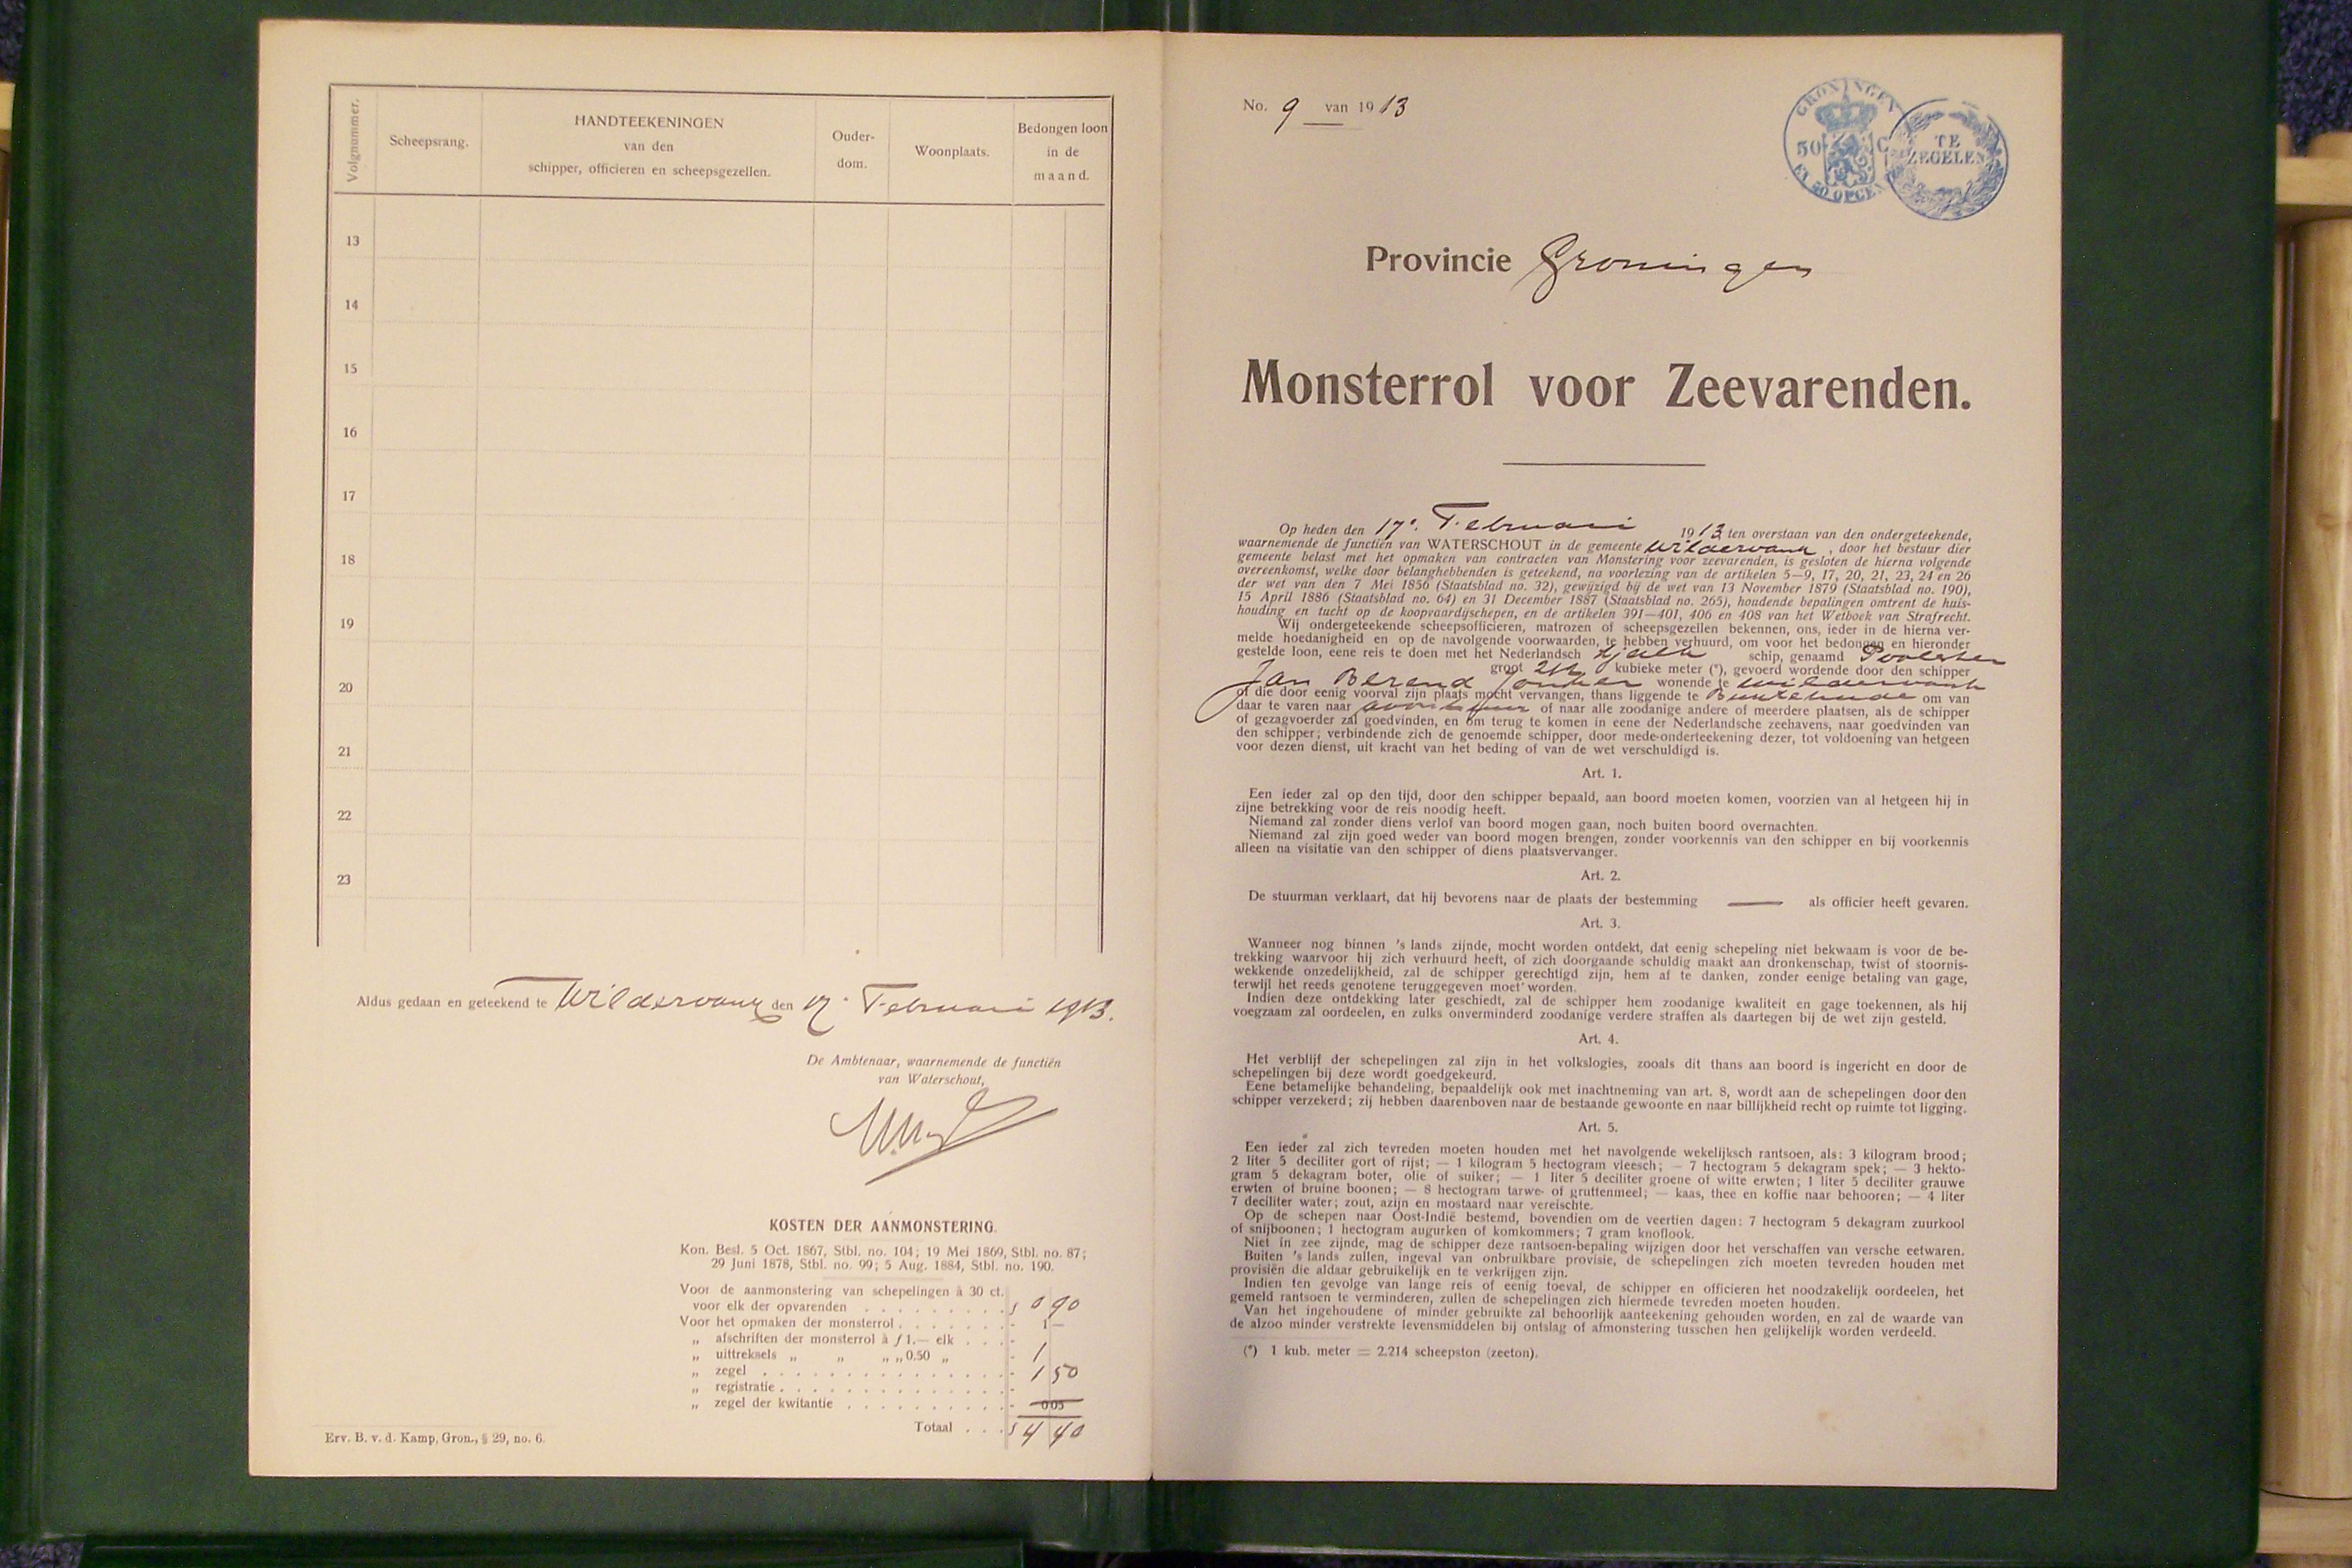 Volgnummer.
Scheepsrang.
HANDTEEKENINGEN
van den
schipper, officieren en scheepsgezellen.
Ouder-
dom.
Woonplaats.
Bedongen loon
in de
maand.
13
14
15
16
17
18
19
20
21
22
23
Aldus gedaan en geteekend te Wildervank den 17. Februari 1913.
De Ambtenaar, waarnemende de functiën
van Waterschout,
KOSTEN DER AANMONSTERING.
Kon. Besl. 5 Oct. 1867, Stbl. no. 104; 19 Mei 1869, Stbl. no. 87;
29 Juni 1878, Stbl. no. 99; 5 Aug. 1884, Stbl. no. 190.
Voor de aanmonstering van schepelingen à 30 ct.
voor elk der opvarenden . . . . . . . . . f 0 90
Voor het opmaken der monsterrol . . . . . . . - 1 —
„ afschriften der monsterrol à f 1.— elk . . . -
„ uittreksels „ „ „ „ 0.50 „ - 1
„ zegel . . . . . . . . . . . . . . . - 1 50
„ registratie . . . . . . . . . . . . . . -
„ zegel der kwitantie . . . . . . . . . . - 0 05
Totaal . . . f 4 40
Erv. B. v. d. Kamp, Gron., § 29, no. 6.
No. 9 van 1913
GRONINGEN
50 C
EN 50 OPCEN
TE
ZEGELEN
Provincie Groningen
Monsterrol voor Zeevarenden.
Op heden den 17e. Februari 1913 ten overstaan van den ondergeteekende,
waarnemende de functiën van WATERSCHOUT in de gemeente Wildervank, door het bestuur dier
gemeente belast met het opmaken van contracten van Monstering voor zeevarenden, is gesloten de hierna volgende
overeenkomst, welke door belanghebbenden is geteekend, na voorlezing van de artikelen 5—9, 17, 20, 21, 23, 24 en 26
der wet van den 7 Mei 1856 (Staatsblad no. 32), gewijzigd bij de wet van 13 November 1879 (Staatsblad no. 190),
15 April 1886 (Staatsblad no. 64) en 31 December 1887 (Staatsblad no. 265), houdende bepalingen omtrent de huis-
houding en tucht op de koopvaardijschepen, en de artikelen 391—401, 406 en 408 van het Wetboek van Strafrecht.
Wij ondergeteekende scheepsofficieren, matrozen of scheepsgezellen bekennen, ons, ieder in de hierna ver-
melde hoedanigheid en op de navolgende voorwaarden, te hebben verhuurd, om voor het bedongen en hieronder
gestelde loon, eene reis te doen met het Nederlandsch tjalk schip, genaamd Poolster
groot kubieke meter (*), gevoerd wordende door den schipper
Jan Berend Jonker wonende te Wildervank
of die door eenig voorval zijn plaats mocht vervangen, thans liggende te om van
daar te varen naar of naar alle zoodanige andere of meerdere plaatsen, als de schipper
of gezagvoerder zal goedvinden, en om terug te komen in eene der Nederlandsche zeehavens, naar goedvinden van
den schipper; verbindende zich de genoemde schipper, door mede-onderteekening dezer, tot voldoening van hetgeen
voor dezen dienst, uit kracht van het beding of van de wet verschuldigd is.
Art. 1.
Een ieder zal op den tijd, door den schipper bepaald, aan boord moeten komen, voorzien van al hetgeen hij in
zijne betrekking voor de reis noodig heeft.
Niemand zal zonder diens verlof van boord mogen gaan, noch buiten boord overnachten.
Niemand zal zijn goed weder van boord mogen brengen, zonder voorkennis van den schipper en bij voorkennis
alleen na visitatie van den schipper of diens plaatsvervanger.
Art. 2.
De stuurman verklaart, dat hij bevorens naar de plaats der bestemming — als officier heeft gevaren.
Art. 3.
Wanneer nog binnen 's lands zijnde, mocht worden ontdekt, dat eenig schepeling niet bekwaam is voor de be-
trekking waarvoor hij zich verhuurd heeft, of zich doorgaande schuldig maakt aan dronkenschap, twist of stoornis-
wekkende onzedelijkheid, zal de schipper gerechtigd zijn, hem af te danken, zonder eenige betaling van gage,
terwijl het reeds genotene teruggegeven moet worden.
Indien deze ontdekking later geschiedt, zal de schipper hem zoodanige kwaliteit en gage toekennen, als hij
voegzaam zal oordeelen, en zulks onverminderd zoodanige verdere straffen als daartegen bij de wet zijn gesteld.
Art. 4.
Het verblijf der schepelingen zal zijn in het volkslogies, zooals dit thans aan boord is ingericht en door de
schepelingen bij deze wordt goedgekeurd.
Eene betamelijke behandeling, bepaaldelijk ook met inachtneming van art. 8, wordt aan de schepelingen door den
schipper verzekerd; zij hebben daarenboven naar de bestaande gewoonte en naar billijkheid recht op ruimte tot ligging.
Art. 5.
Een ieder zal zich tevreden moeten houden met het navolgende wekelijksch rantsoen, als: 3 kilogram brood;
2 liter 5 deciliter gort of rijst; — 1 kilogram 5 hectogram vleesch; — 7 hectogram 5 dekagram spek; — 3 hekto-
gram 5 dekagram boter, olie of suiker; — 1 liter 5 deciliter groene of witte erwten; 1 liter 5 deciliter grauwe
erwten of bruine boonen; — 8 hectogram tarwe- of gruttenmeel; — kaas, thee en koffie naar behooren; — 4 liter
7 deciliter water; zout, azijn en mostaard naar vereischte.
Op de schepen naar Oost-Indië bestemd, bovendien om de veertien dagen: 7 hectogram 5 dekagram zuurkool
of snijboonen; 1 hectogram augurken of komkommers; 7 gram knoflook.
Niet in zee zijnde, mag de schipper deze rantsoen-bepaling wijzigen door het verschaffen van versche eetwaren.
Buiten 's lands zullen, ingeval van onbruikbare provisie, de schepelingen zich moeten tevreden houden met
provisiën die aldaar gebruikelijk en te verkrijgen zijn.
Indien ten gevolge van lange reis of eenig toeval, de schipper en officieren het noodzakelijk oordeelen, het
gemeld rantsoen te verminderen, zullen de schepelingen zich hiermede tevreden moeten houden.
Van het ingehoudene of minder gebruikte zal behoorlijk aanteekening gehouden worden, en zal de waarde van
de alzoo minder verstrekte levensmiddelen bij ontslag of afmonstering tusschen hen gelijkelijk worden verdeeld.
(*) 1 kub. meter = 2.214 scheepston (zeeton).